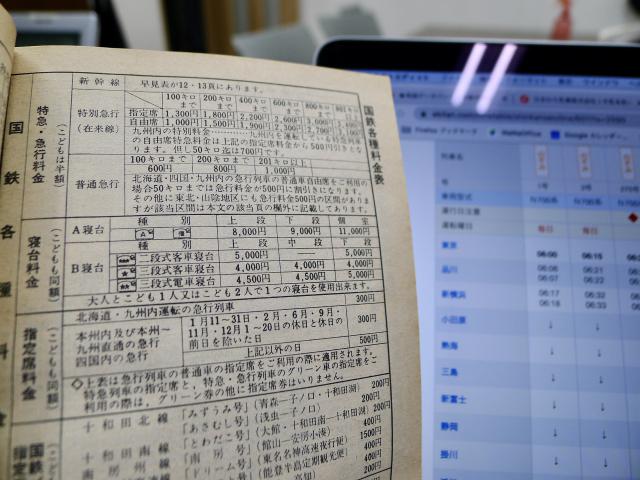 国鉄各種料金表
新幹線 早見表が12・13頁にあります。
特急・急行料金
(こどもは半額)
特別急行
(在来線)
100キロまで 200キロまで 400キロまで 600キロまで 800キロ
指定席 1,300円 1,800円 2,200円
自由席 1,000円 1,500円 1,900円
九州内の特別料金
の自由席特急料金は上記の指定席料金から500円引きとな
ります。但し50キロ迄は700円です。
普通急行
100キロまで 200キロまで 201キロ以上
600円 800円 1,000円
北海道・四国・九州内の急行列車の普通車自由席をご利用の
場合50キロまでは急行料金が500円に割引きになります。
その他に東北・山陰地区にも急行料金500円の区間があります
が該当区間は本文の該当頁の欄外に記載してあります。
寝台料金
(こどもも同額)
A寝台
種別 上段 下段 個室
8,000円 9,000円 11,000円
B寝台
種別 上段 中段 下段
二段式客車寝台 5,000円 — 5,000円
三段式客車寝台 4,000円 4,000円 4,000円
三段式電車寝台 4,500円 4,500円 5,000円
大人とこども1人又はこども2人で1つの寝台を使用出来ます。
指定席料金
(こどもも同額)
北海道・九州内運転の急行列車 300円
本州内及び本州〜
九州直通の急行
四国内の急行
1月11〜31日・2月・6月・9月・
11月・12月1〜20日の休日と休日の
前日を除いた日 300円
上記以外の日 500円
◇上表は急行列車の普通車の指定席をご利用の際に適用されます。
特急列車の指定席と、特急・急行列車のグリーン車の指定席をご
利用の際は、グリーン券の他に指定席券はいりません。
国鉄
指定
十和田北線 「みずうみ号」(青森—子ノ口・十和田湖) 200円
「あさむし号」(浅虫—子ノ口) 200円
十和田南線 「とわだこ号」(大館・十和田南—十和田湖) 200円
南房州線 「南房号」(館山—安房小湊) 400円
「ドリーム号」(東名名神高速夜行便) 1500円
(能登半島定期観光便) 400円
国鉄各種料金
Firefox ブックマーク
MathsOffice
Google カレンダー
列車名
1号 2号
車両型式 N700系 N700系
運行日注意
運転曜日 毎日 毎日
東京 06:00 06:15
品川 06:06 06:21
06:07 06:22
新横浜 06:17 06:32
06:18 06:33
小田原 ↓ ↓
熱海 ↓ ↓
三島 ↓ ↓
新富士 ↓ ↓
静岡 ↓ ↓
掛川 ↓ ↓